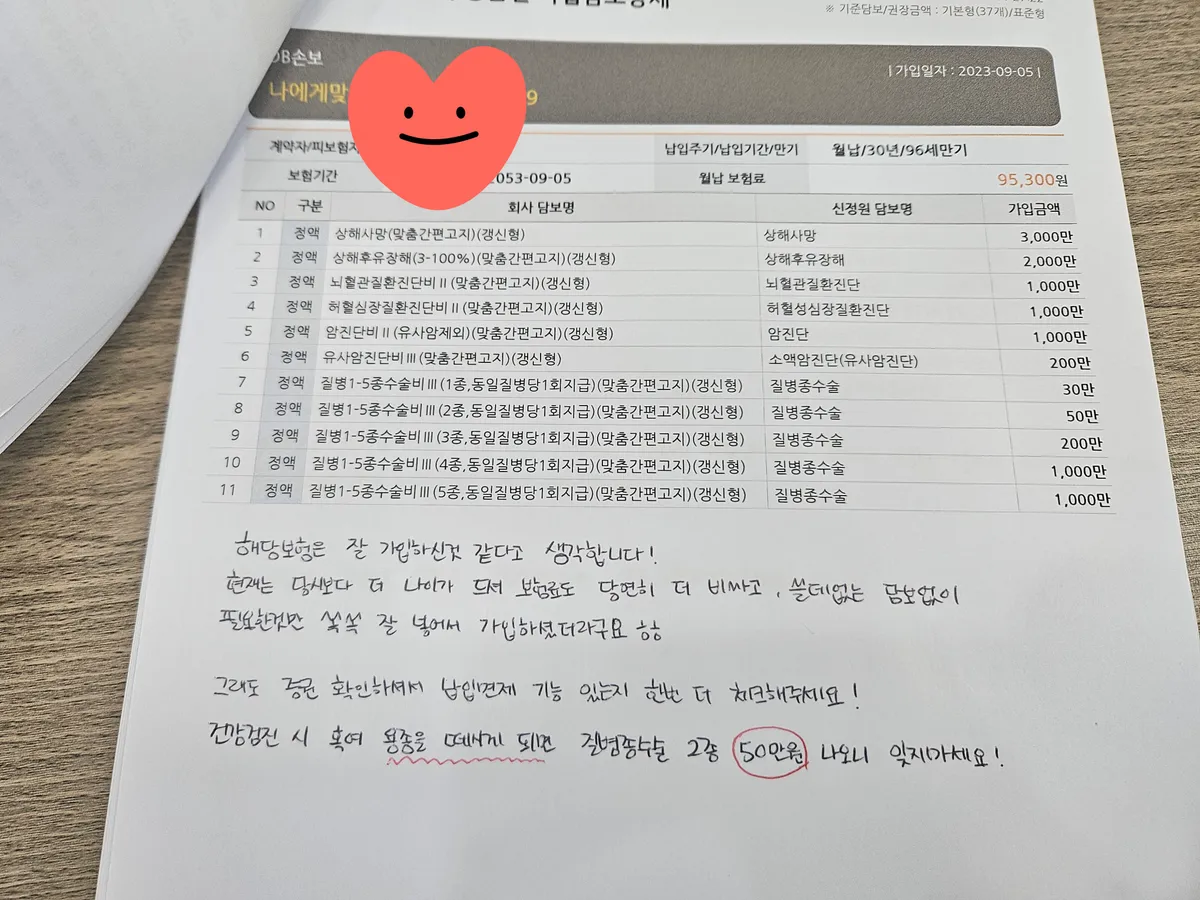 ※ 기준담보/권장금액 : 기본형(37개)/표준형
DB손보
| 가입일자 : 2023-09-05 |
나에게맞 9
계약자/피보험자 납입주기/납입기간/만기 월납/30년/96세만기
보험기간 2053-09-05 월납 보험료 95,300원
NO 구분 회사 담보명 신정원 담보명 가입금액
1 정액 상해사망(맞춤간편고지)(갱신형) 상해사망 3,000만
2 정액 상해후유장해(3-100%)(맞춤간편고지)(갱신형) 상해후유장해 2,000만
3 정액 뇌혈관질환진단비Ⅱ(맞춤간편고지)(갱신형) 뇌혈관질환진단 1,000만
4 정액 허혈심장질환진단비Ⅱ(맞춤간편고지)(갱신형) 허혈성심장질환진단 1,000만
5 정액 암진단비Ⅱ(유사암제외)(맞춤간편고지)(갱신형) 암진단 1,000만
6 정액 유사암진단비Ⅲ(맞춤간편고지)(갱신형) 소액암진단(유사암진단) 200만
7 정액 질병1-5종수술비Ⅲ(1종,동일질병당1회지급)(맞춤간편고지)(갱신형) 질병종수술 30만
8 정액 질병1-5종수술비Ⅲ(2종,동일질병당1회지급)(맞춤간편고지)(갱신형) 질병종수술 50만
9 정액 질병1-5종수술비Ⅲ(3종,동일질병당1회지급)(맞춤간편고지)(갱신형) 질병종수술 200만
10 정액 질병1-5종수술비Ⅲ(4종,동일질병당1회지급)(맞춤간편고지)(갱신형) 질병종수술 1,000만
11 정액 질병1-5종수술비Ⅲ(5종,동일질병당1회지급)(맞춤간편고지)(갱신형) 질병종수술 1,000만
해당보험은 잘 가입하신것 같다고 생각합니다!
현재는 당시보다 더 나이가 드셔 보험료도 당연히 더 비싸고, 쓸데없는 담보없이
필요한것만 쏙쏙 잘 넣어서 가입하셨더라구요 ㅎㅎ
그래도 증권 확인하셔서 납입면제 기능 있는지 한번 더 체크해주세요!
건강검진 시 혹여 용종을 떼시게 되면 질병종수술 2종 50만원 나오니 잊지마세요!